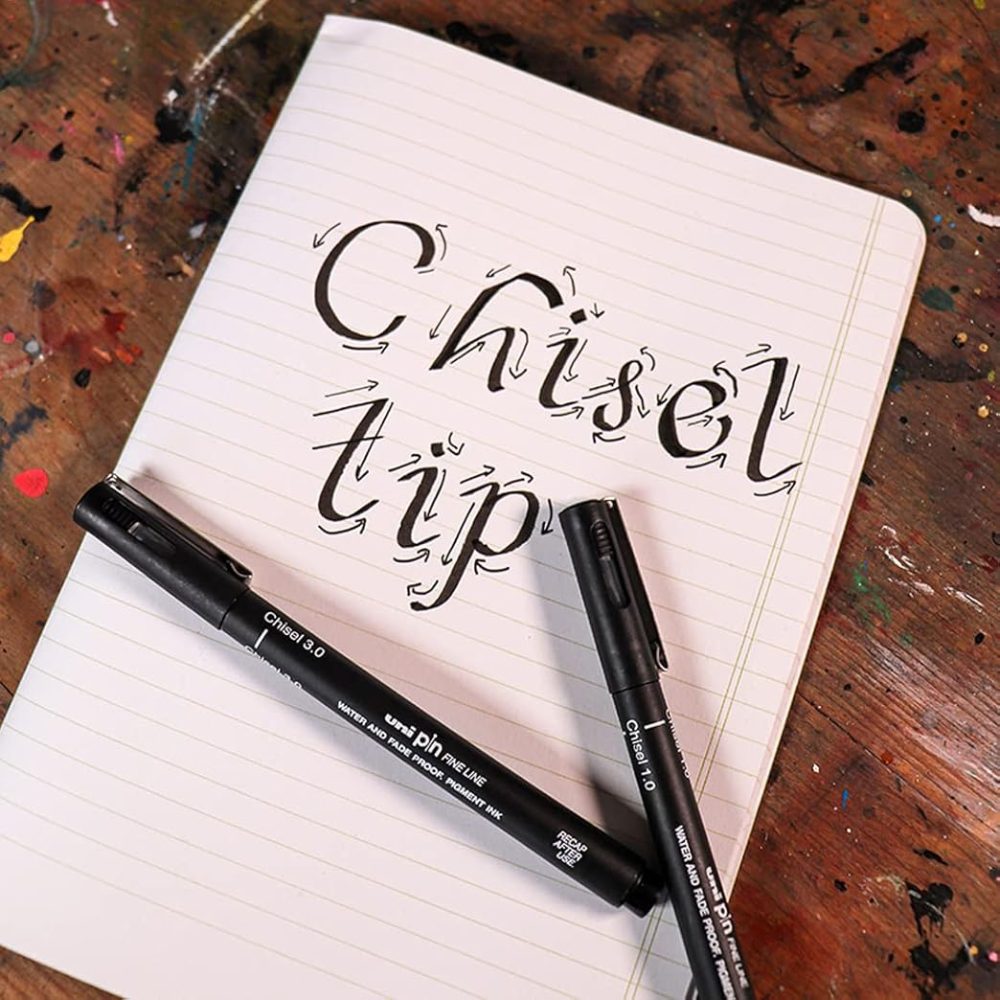 Chisel
tip
Chisel 3.0
Chisel 3.0
uni pin FINE LINE
WATER AND FADE PROOF, PIGMENT INK
RECAP
AFTER
USE
Chisel 1.0
Chisel 1.0
uni pin FINE LINE
WATER AND FADE PROOF, PIGMENT